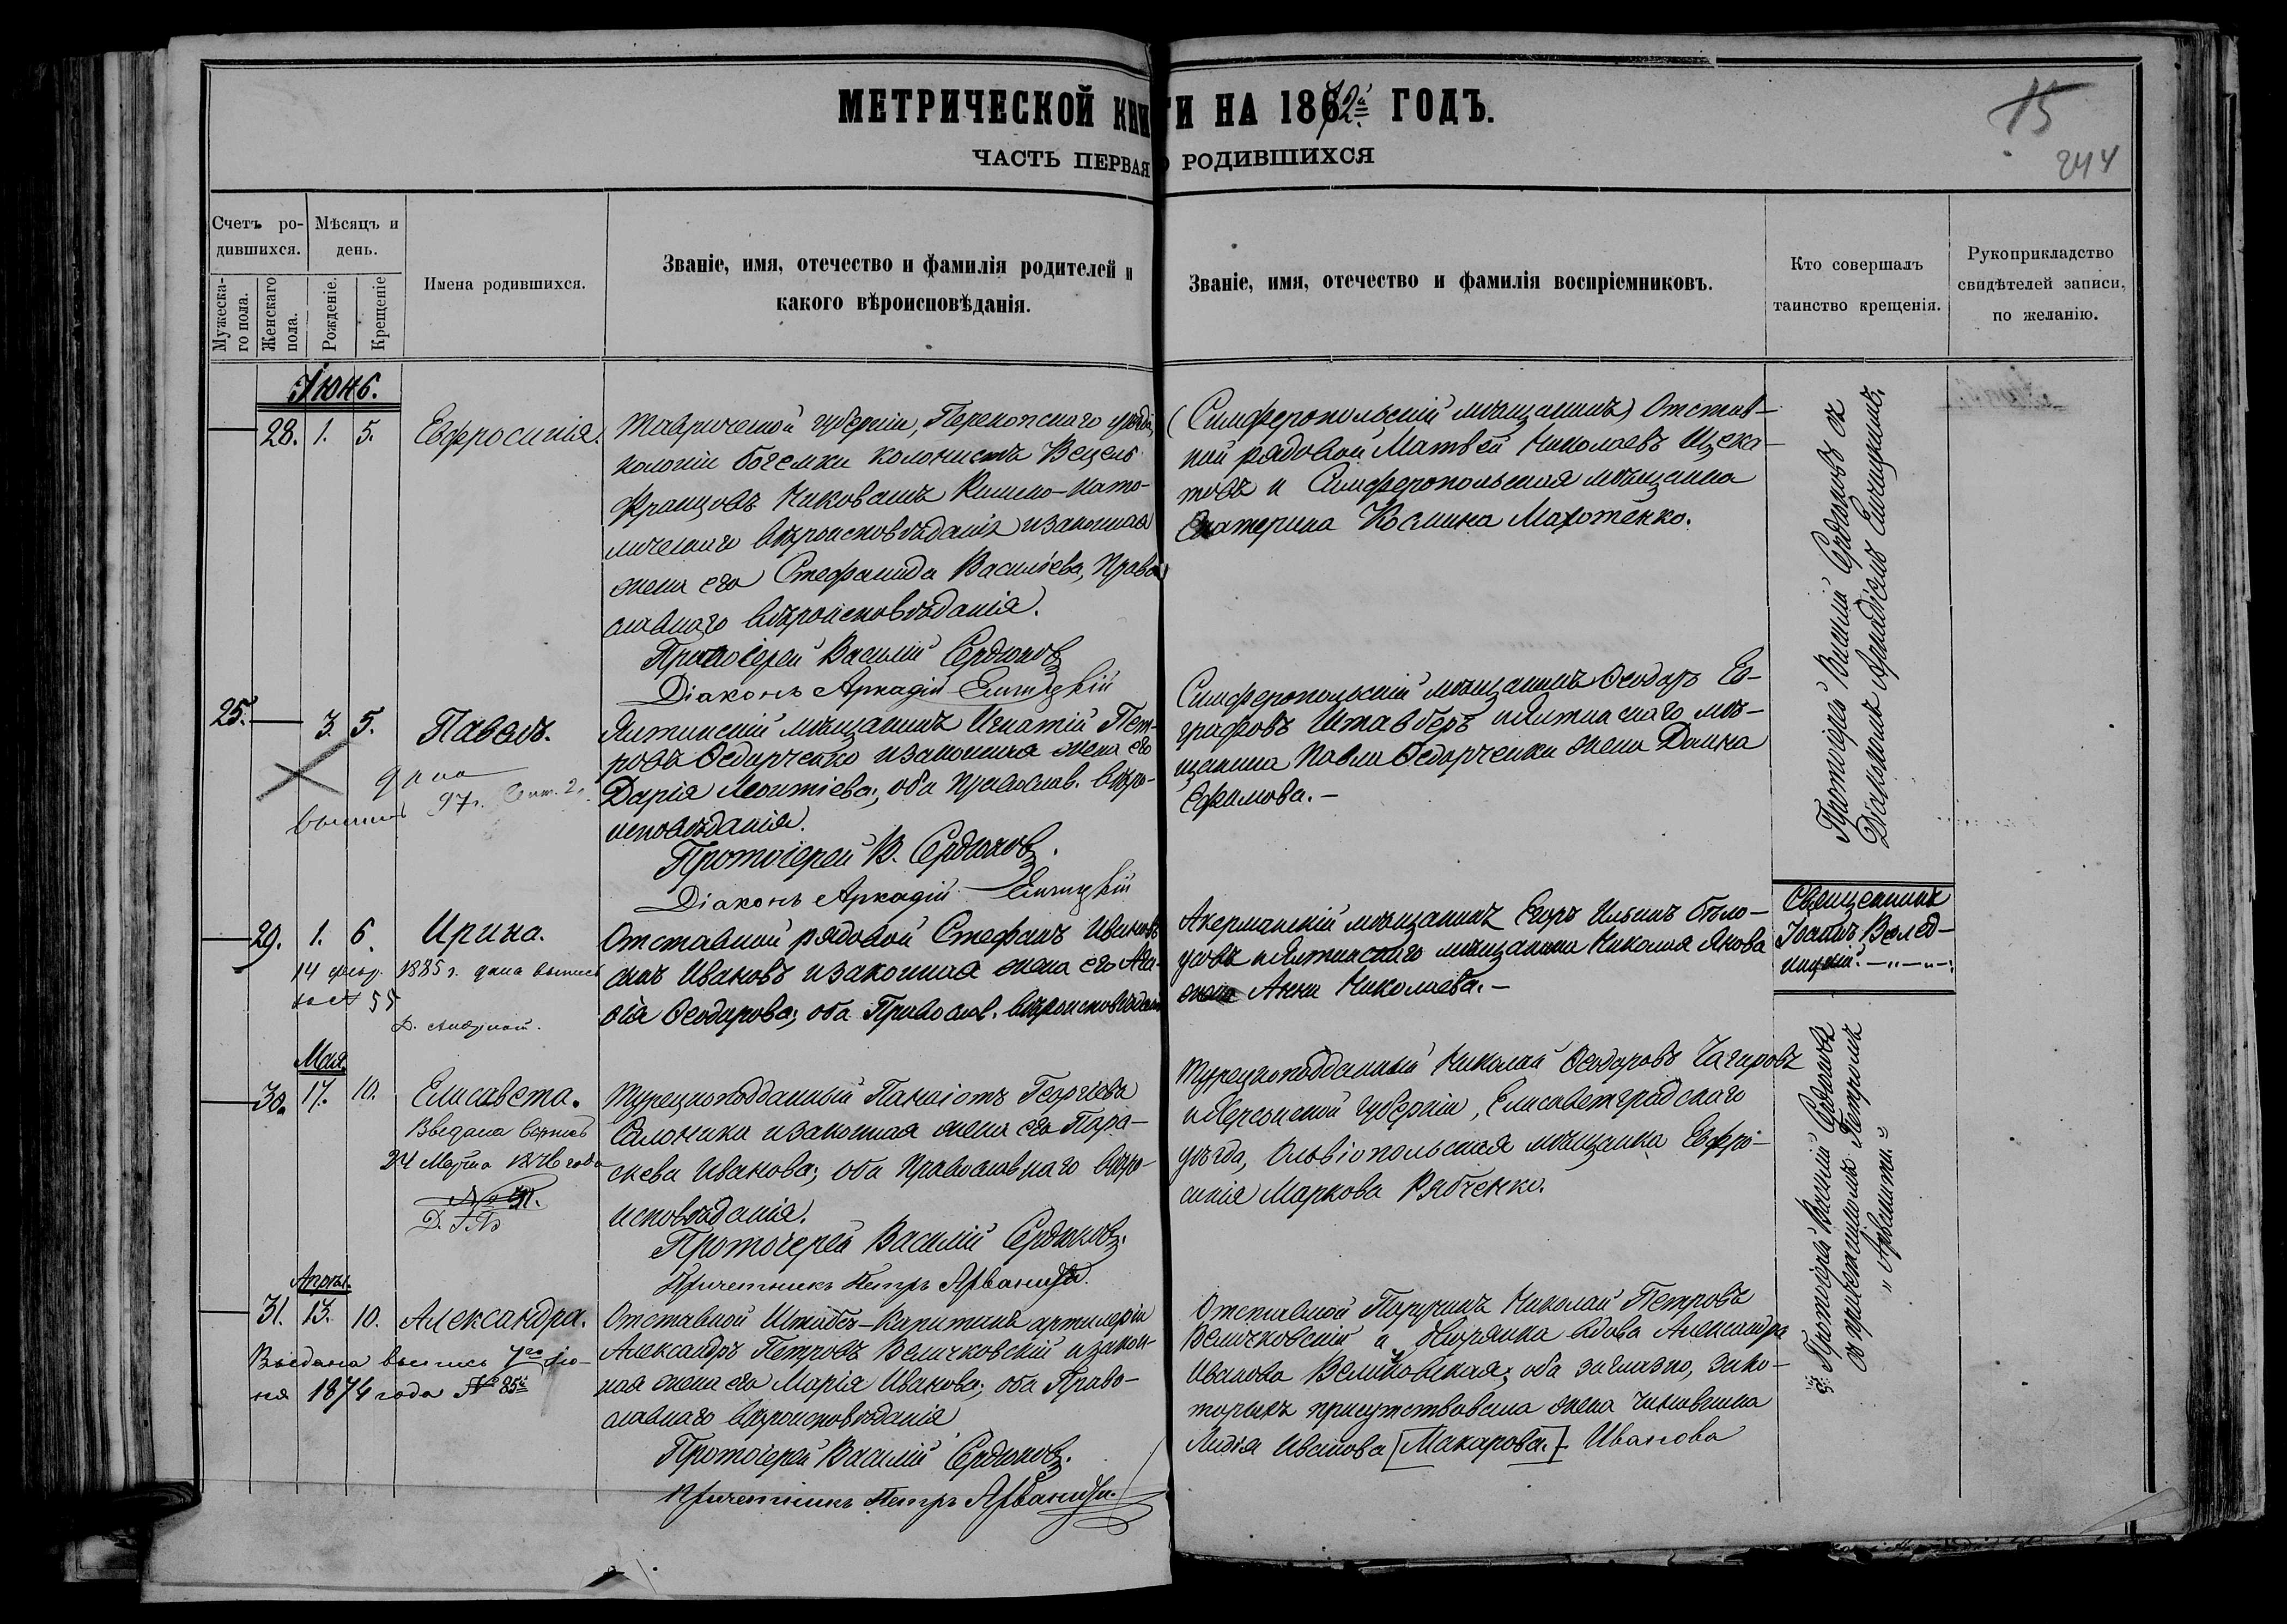 МЕТРИЧЕСКОЙ КНИГИ НА 1872й ГОДЪ.
ЧАСТЬ ПЕРВАЯ О РОДИВШИХСЯ
15
244
Счетъ ро-
дившихся.
Мужеска-
го пола.
Женскаго
пола.
Мѣсяцъ и
день.
Рожденіе.
Крещеніе
Имена родившихся.
Званіе, имя, отечество и фамилія родителей и
какого вѣроисповѣданія.
Званіе, имя, отечество и фамилія воспріемниковъ.
Кто совершалъ
таинство крещенія.
Рукоприкладство
свидѣтелей записи,
по желанію.
Іюнь.
28. 1. 5. Евфросинія.
Таврической губерніи, Перекопскаго уѣзда,
колоніи Богемки колонистъ Венцель
Францовъ Никовашъ Римско-като-
лическаго вѣроисповѣданія и законная
жена его Стефанида Васильева, Право
славнаго вѣроисповѣданія.
Протоіерей Василій Сердюковъ
Діаконъ Аркадій
(Симферопольскій мѣщанинъ) Отстав-
ной рядовой Матвѣй Николаевъ Щека-
товъ и Симферопольская мѣщанка
Екатерина Космина Махотенко.
Протоіерей Василій Сердюковъ съ
Діакономъ Аркадіемъ
25. 3. 5. Павелъ.
дана
97 г. Сент. 2
Ялтинскій мѣщанинъ Игнатій Пет-
ровъ Ѳедорченко и законная жена его
Дарія Леонтіева, оба Православ. вѣро-
исповѣданія.
Протоіерей В. Сердюковъ.
Діаконъ Аркадій
Симферопольскій мѣщанинъ Ѳеодоръ Ев-
графовъ Иставберъ и Ялтинскаго мѣ-
щанина Павла Ѳедорченки жена Домна
Ефимова.-
29. 1. 6. Ирина.
14 февр. 1885 г. дана выпись
за № 55
Отставной рядовой Стефанъ Ивановъ
сынъ Ивановъ и законная жена его Ага-
ѳія Ѳеодорова, оба Православ. вѣроисповѣданія
Акерманскій мѣщанинъ Егоръ Ильинъ Бѣло-
усовъ и Ялтинскаго мѣщанина Николая Янова
жена Анна Николаева.-
Священникъ
Іоаннъ
Мая
30. 17. 10. Елисавета.
Выдана выпись
24 Марта 1876 года
Турецкоподданный Панаіотъ Георгіевъ
Салоники и законная жена его Пара-
скева Иванова, оба Православнаго вѣро-
исповѣданія.
Протоіерей Василій Сердюковъ.
Причетникъ Петръ Арваниди.
Турецкоподданный Николай Ѳеодоровъ Чагаровъ
и Херсонской губерніи, Елисаветградскаго
уѣзда, Ольвіопольская мѣщанка Евфро-
синія Маркова Рябченко.
Протоіерей Василій Сердюковъ
съ причетникомъ Петромъ
„Арваниди."
Апрѣл.
31. 13. 10. Александра.
Выдана выпись 7го Ію-
ня 1874 года № 85й
Отставной Штабсъ-Капитанъ артилеріи
Александръ Петровъ Величковскій и закон-
ная жена его Марія Иванова, оба Право-
славнаго вѣроисповѣданія
Протоіерей Василій Сердюковъ.
Причетникъ Петръ Арваниди.
Отставной Поручикъ Николай Петровъ
Величковскій и Дворянка вдова Александра
Иванова Величковская; оба заглазно, за ко-
торыхъ присутствовала жена чиновника
Лидія Иванова [Макарова.] Иванова